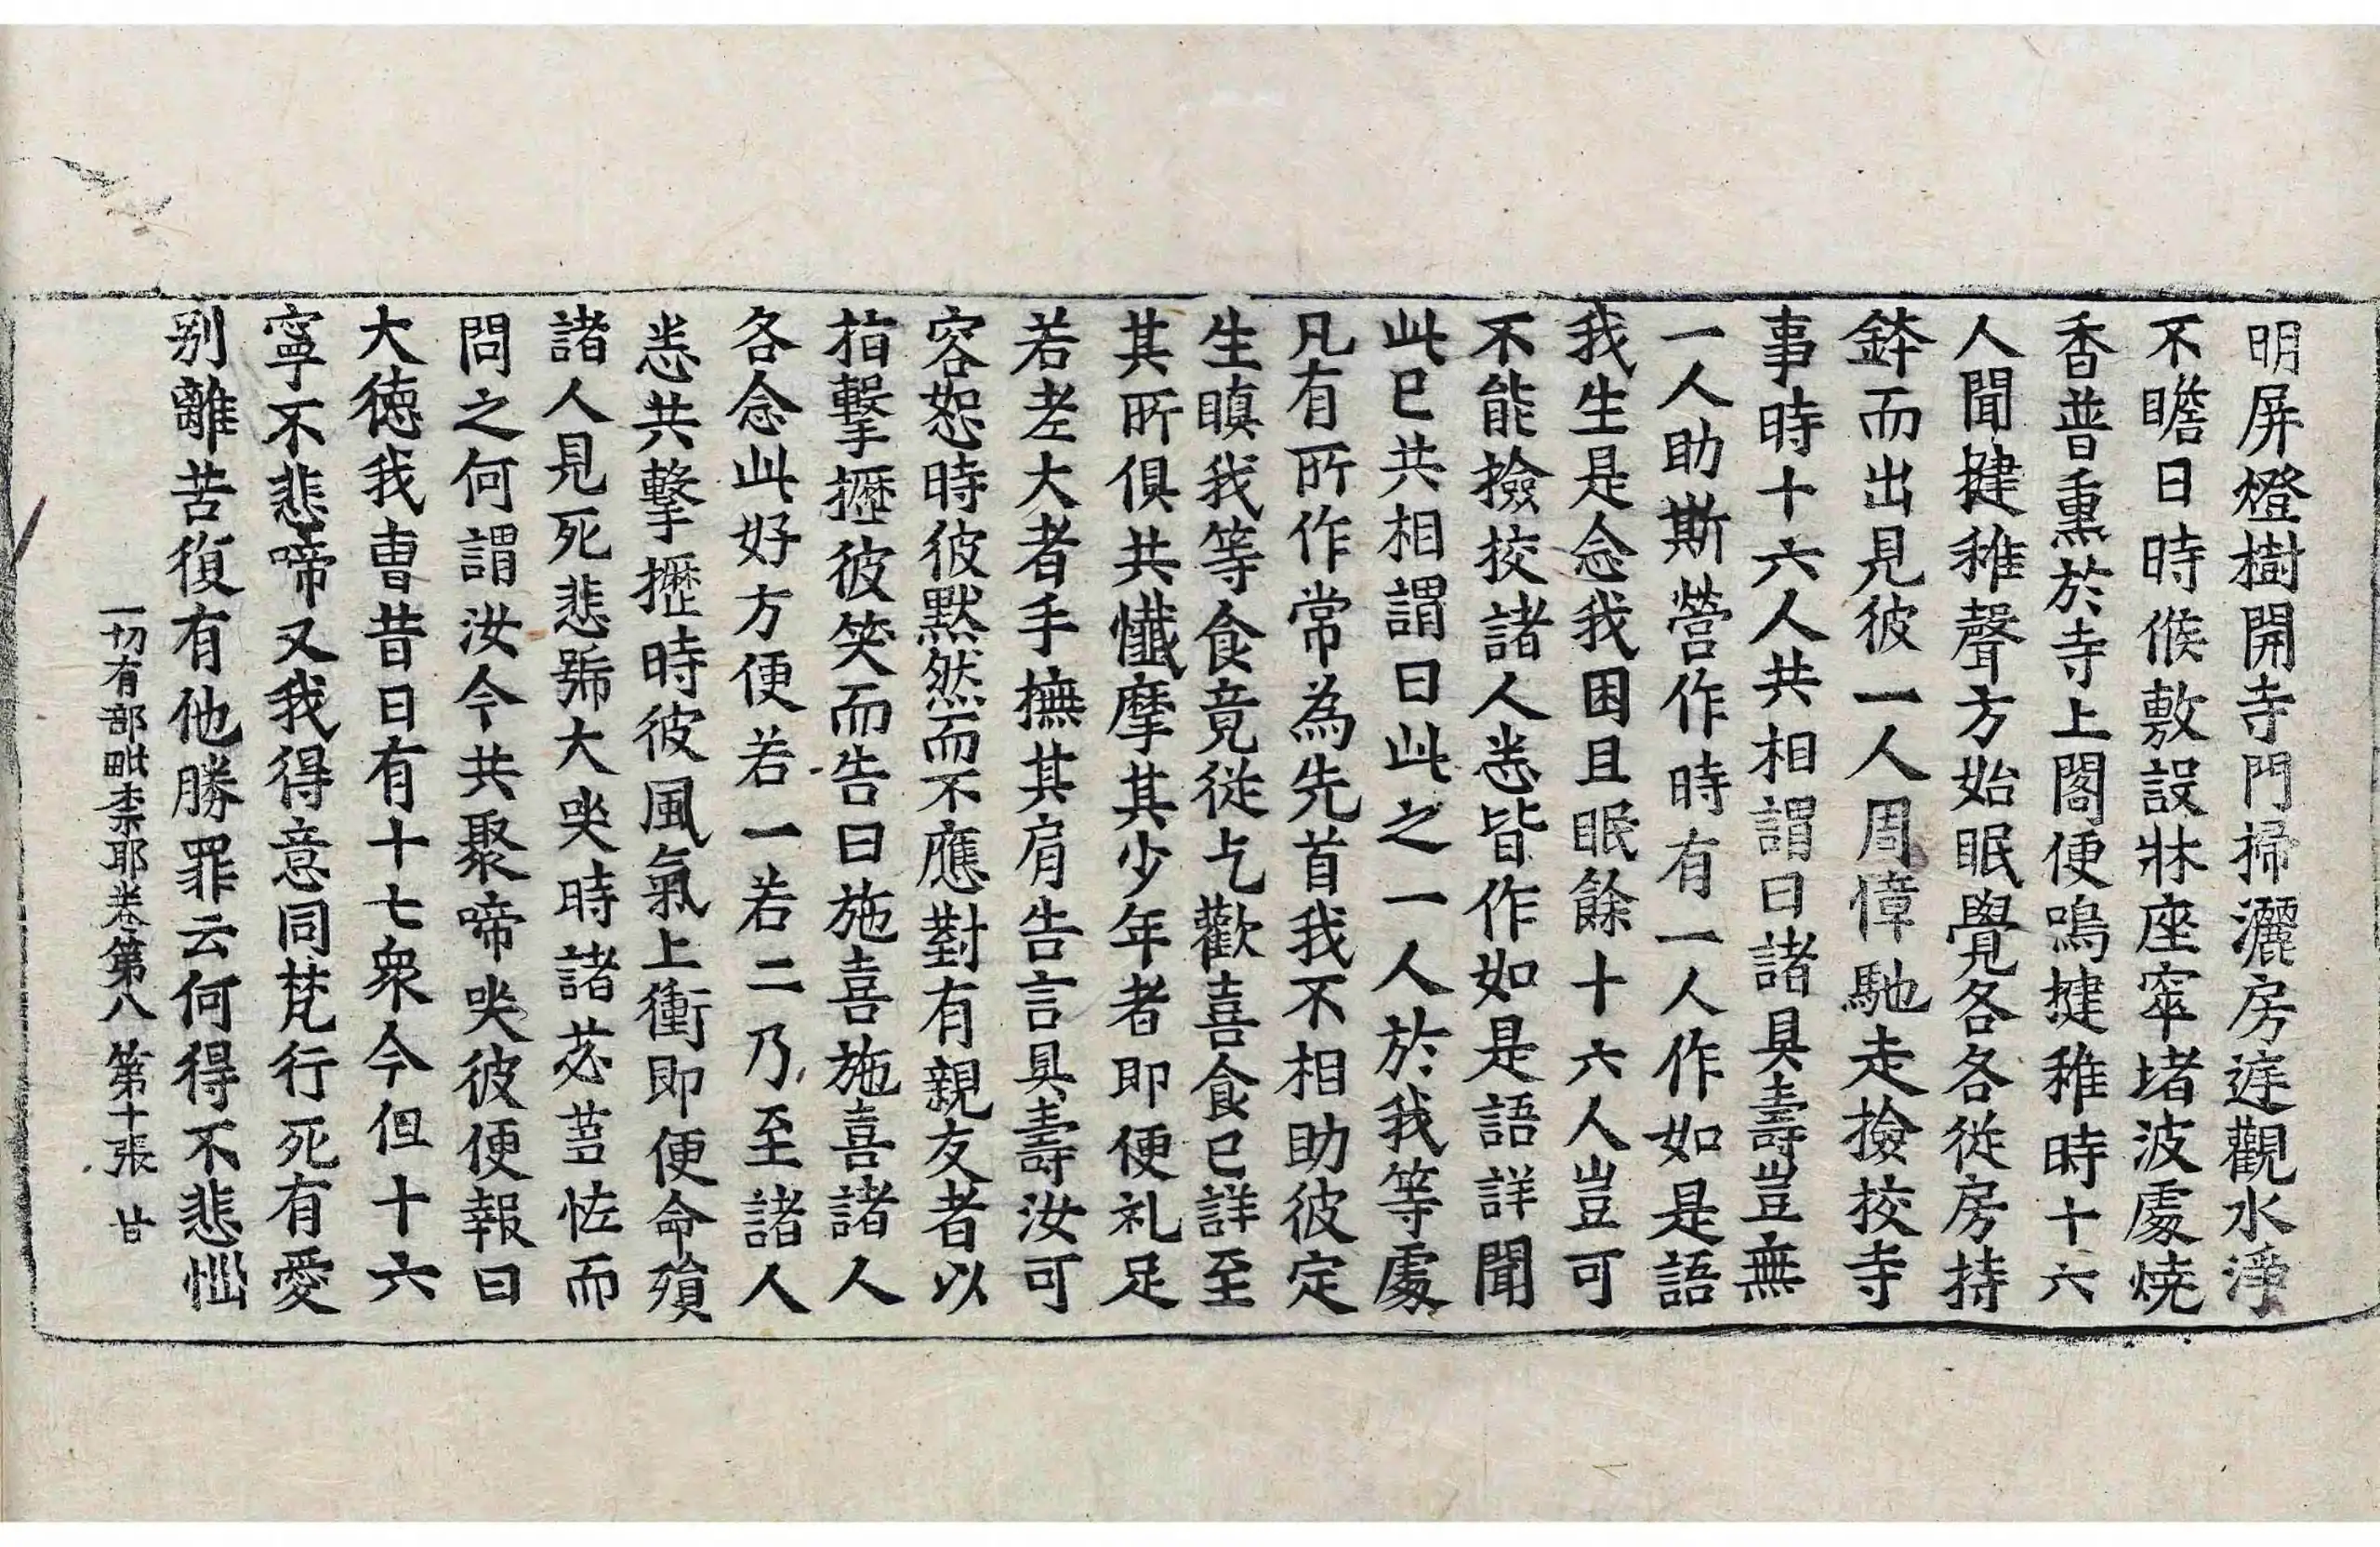 明屏燈樹開寺門掃灑房庭觀水淨
不瞻日時候敷設牀座窣堵波處燒
香普熏於寺上閣便鳴揵稚時十六
人聞揵稚聲方始眠覺各各從房持
鉢而出見彼一人周慞馳走撿挍寺
事時十六人共相謂曰諸具壽豈無
一人助斯營作時有一人作如是語
我生是念我困且眠餘十六人豈可
不能撿挍諸人悉皆作如是語詳聞
此已共相謂曰此之一人於我等處
凡有所作常為先首我不相助彼定
生瞋我等食竟從乞歡喜食已詳至
其所俱共懺摩其少年者即便礼足
若老大者手撫其肩告言具壽汝可
容恕時彼默然而不應對有親友者以
指擊攊彼笑而告曰施喜施喜諸人
各念此好方便若一若二乃至諸人
悉共擊攊時彼風氣上衝即便命殞
諸人見死悲號大哭時諸苾芻怪而
問之何謂汝今共聚啼哭彼便報曰
大德我曹昔日有十七衆今但十六
寧不悲啼又我得意同梵行死有愛
别離苦復有他勝罪云何得不悲惱
一切有部毗柰耶卷第八 第十張 甘